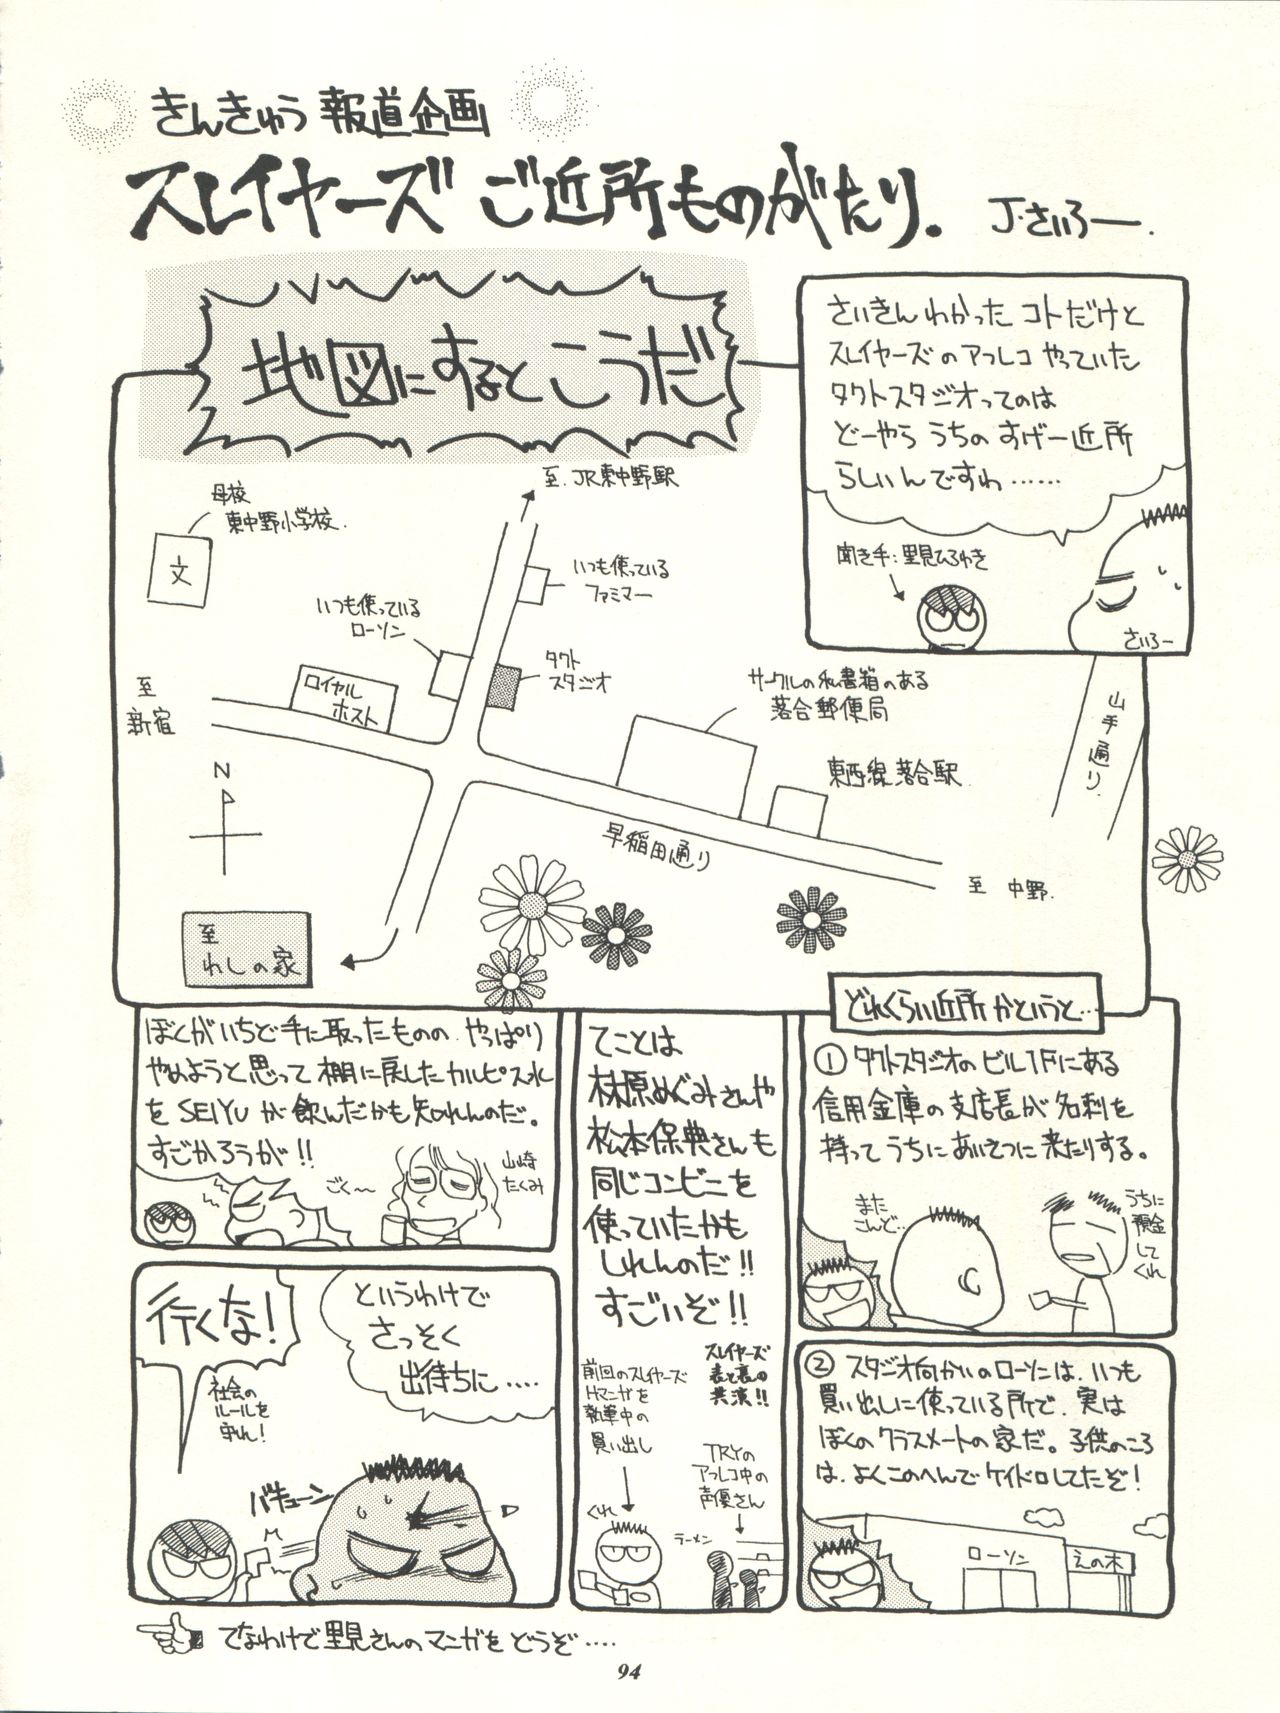 きんきゅう 報道企画
スレイヤーズ ご近所ものがたり。
J・さいろー.
さいきん わかった コトだけど
スレイヤーズ の アフレコ やっていた
タクトスタジオってのは
どーやら うちの すげー近所
らしいんですわ……
聞き手:里見ひろゆき
さいろー
地図にするとこうだ
至.JR東中野駅
母校
東中野小学校.
文
いつも使っている
ファミマー
いつも使っている
ローソン
タクト
スタジオ
ロイヤル
ホスト
サークルの私書箱のある
落合郵便局
至
新宿
東西線落合駅
山手通り.
N
早稲田通り
至 中野.
至
わしの家
どれくらい近所 かというと…
① タクトスタジオの ビル1Fにある
信用金庫の支店長が名刺を
持って うちに あいさつに来たりする。
また
こんど…
うちに
預金
して
くれ
② スタジオ向かいの ローソンは、いつも
買い出しに使っている所で、実は
ぼくの クラスメートの 家だ。子供のころ
は、よくこのへんで ケイドロしてたぞ!
ローソン
えの木
てことは
林原めぐみさんや
松本保典さんも
同じコンビニを
使っていたかも
しれんのだ!!
すごいぞ!!
スレイヤーズ
表と裏の
共演!!
前回のスレイヤーズ
Hマンガを
執筆中の
買い出し
TRYの
アフレコ中の
声優さん
くれ
ラーメン
ぼくがいちど手に取ったものの やっぱり
やめようと思って棚に戻したカルピス水
を SEIYU が飲んだかも知れんのだ。
すごかろうが!!
ごく〜
山崎
たくみ
というわけで
さっそく
出待ちに‥‥
行くな!
社会の
ルールを
守れ!
バキューン
てなわけで里見さんのマンガを どうぞ‥‥
94